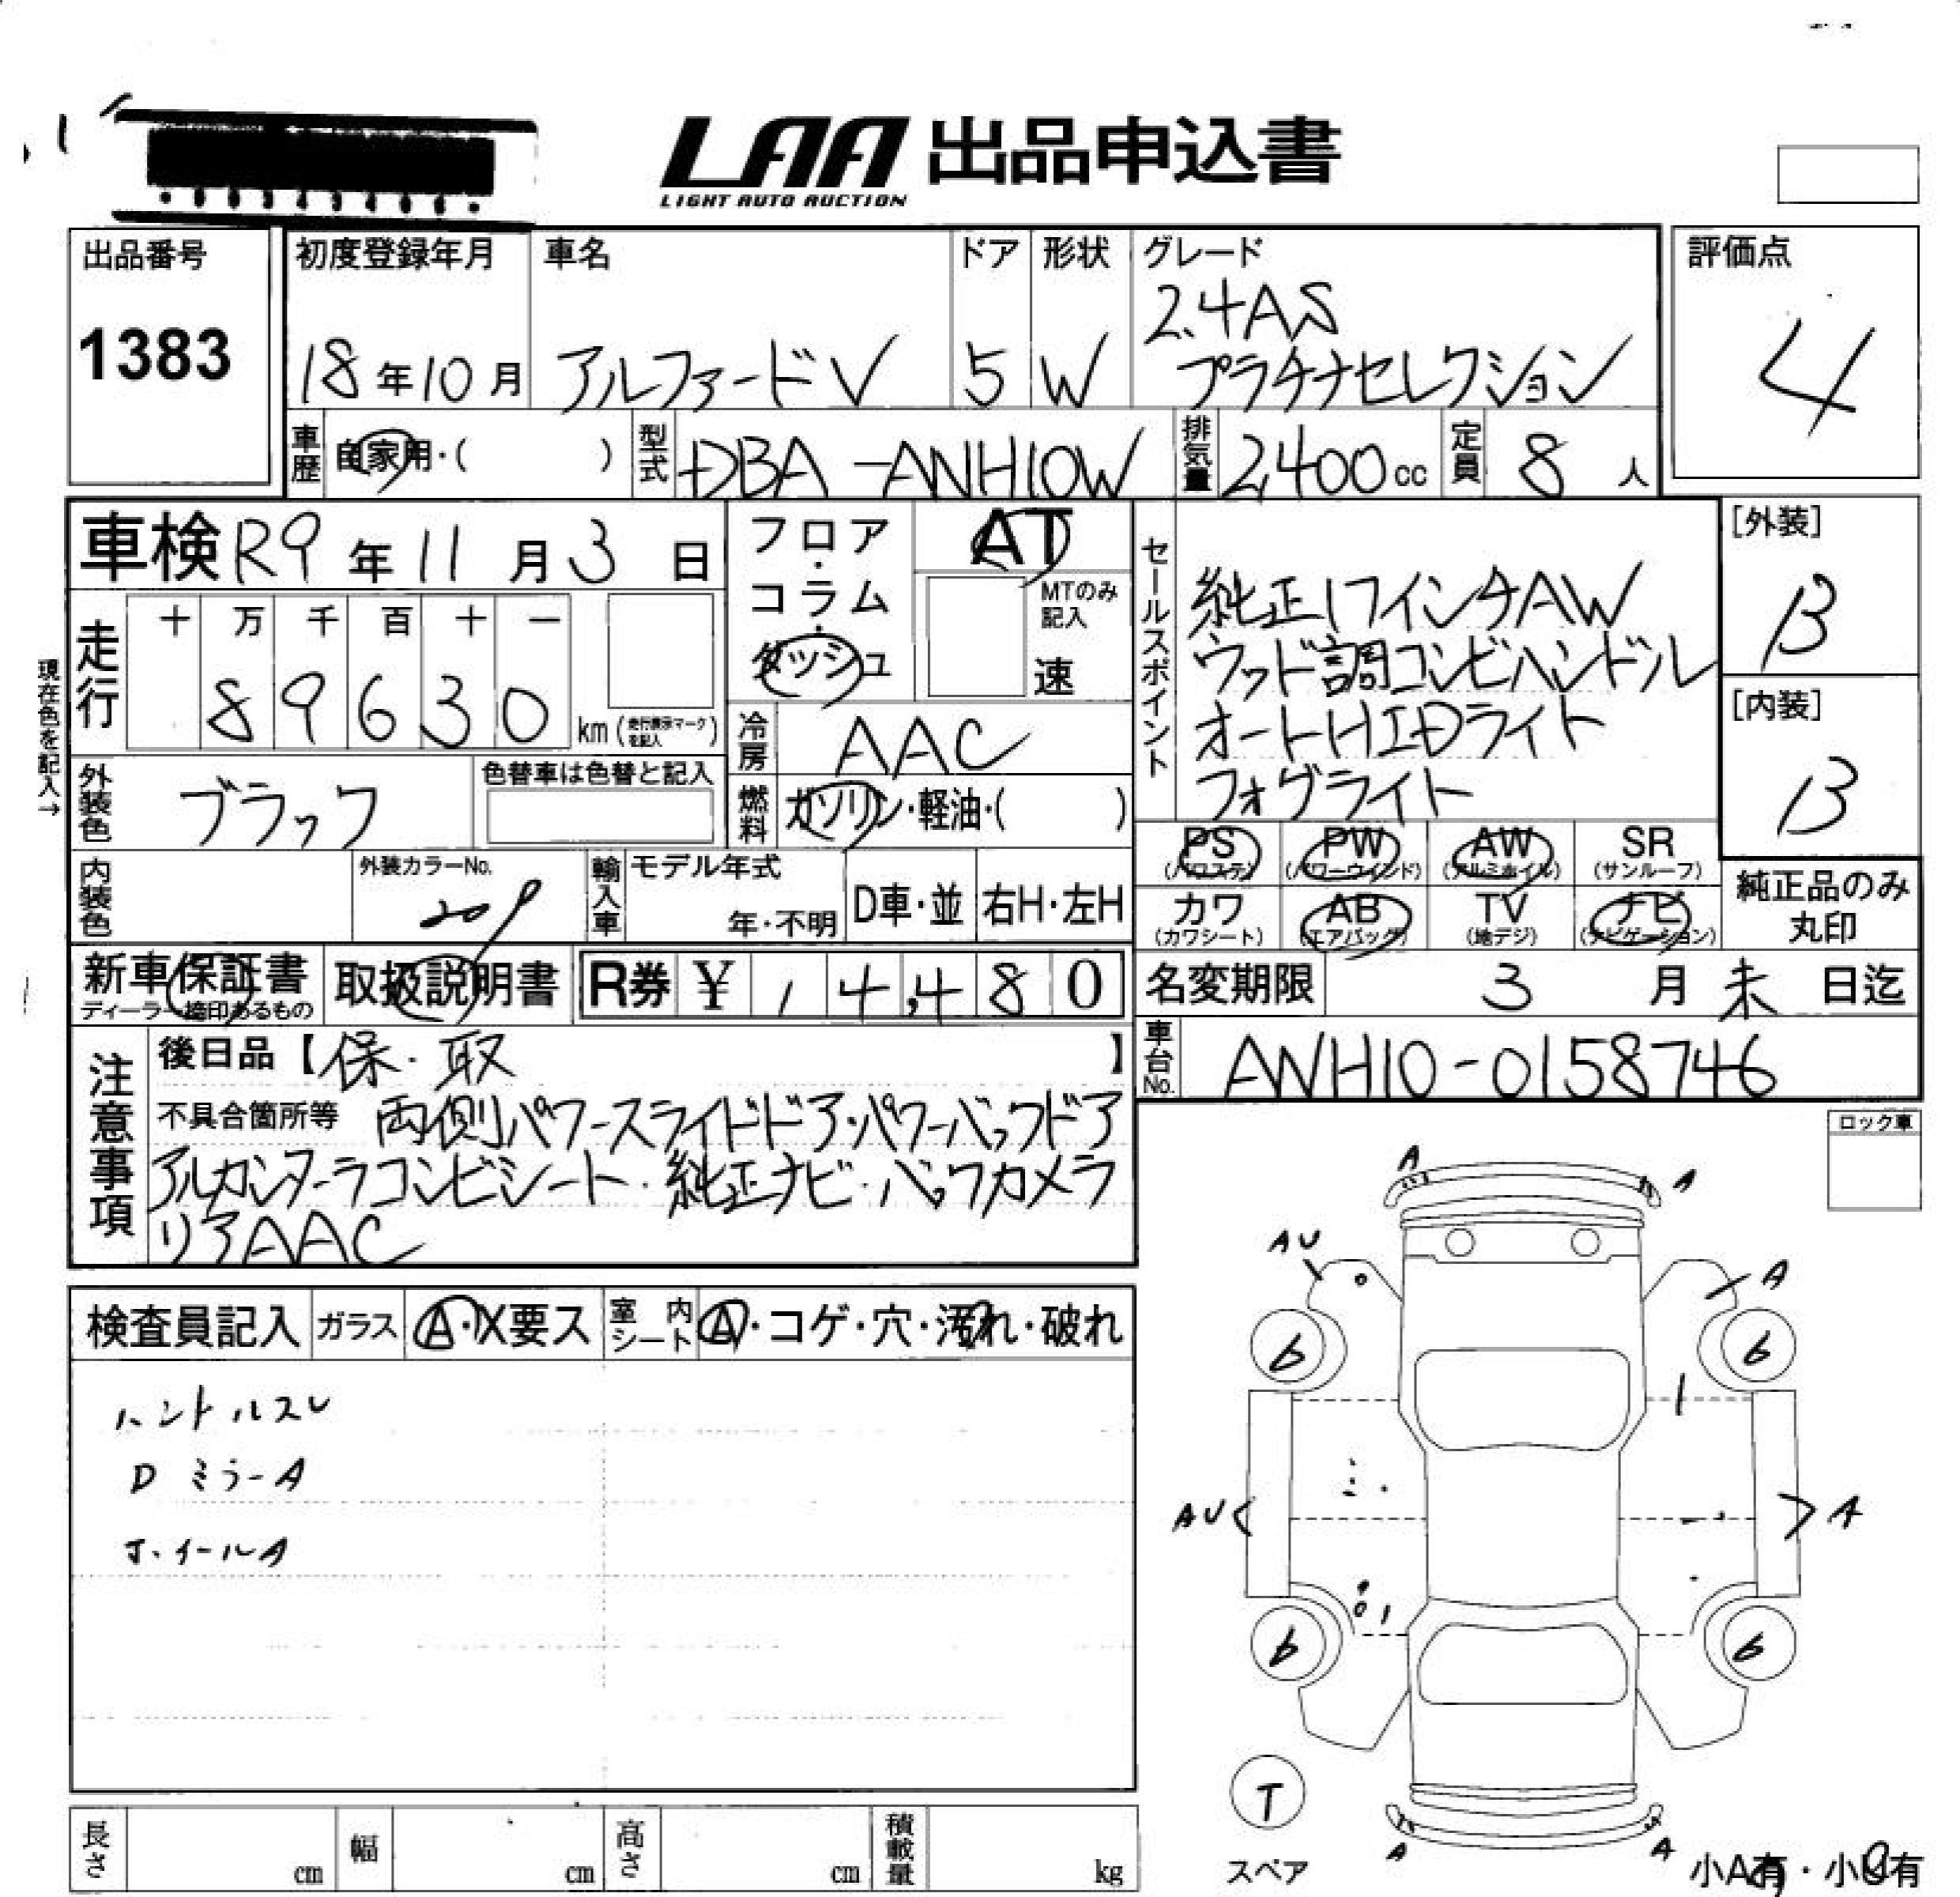 LAA 出品申込書
LIGHT AUTO AUCTION
出品番号
1383
初度登録年月
18年10月
車名
アルファードV
ドア
5
形状
W
グレード
2.4AS
プラチナセレクション
評価点
4
車歴
自家用・( )
型式
DBA-ANH10W
排気量
2,400cc
定員
8人
車検 R9年11月3日
走行
十 万 千 百 十 一
8 9 6 3 0
km (走行表示マークを記入)
現在色を記入→
外装色
ブラック
色替車は色替と記入
内装色
外装カラーNo.
209
フロア・
コラム・
ダッシュ
AT
MTのみ
記入
速
冷房
AAC
燃料
ガソリン・軽油・( )
輸入車
モデル年式
年・不明
D車・並
右H・左H
セールスポイント
純正17インチAW
ウッド調コンビハンドル
オートHIDライト
フォグライト
[外装]
B
[内装]
B
PS
(パワステ)
PW
(パワーウインド)
AW
(アルミホイル)
SR
(サンルーフ)
カワ
(カワシート)
AB
(エアバッグ)
TV
(地デジ)
ナビ
(ナビゲーション)
純正品のみ
丸印
新車保証書
ディーラー捺印あるもの
取扱説明書
R券 ¥ 14,480
名変期限 3月末日迄
車台No.
ANH10-0158746
注意事項
後日品【保・取 】
不具合箇所等 両側パワースライドドア・パワーバックドア
アルカンターラコンビシート・純正ナビ・バックカメラ
リアAAC
ロック車
検査員記入
ガラス
A・X要ス
室内
シート
A・コゲ・穴・汚れ・破れ
ハンドルスレ
DミラーA
ホイールA
A
A
AU
A
6
6
AU
A
6
6
T
スペア
A
A
小A有・小U有
長さ
cm
幅
cm
高さ
cm
積載量
kg